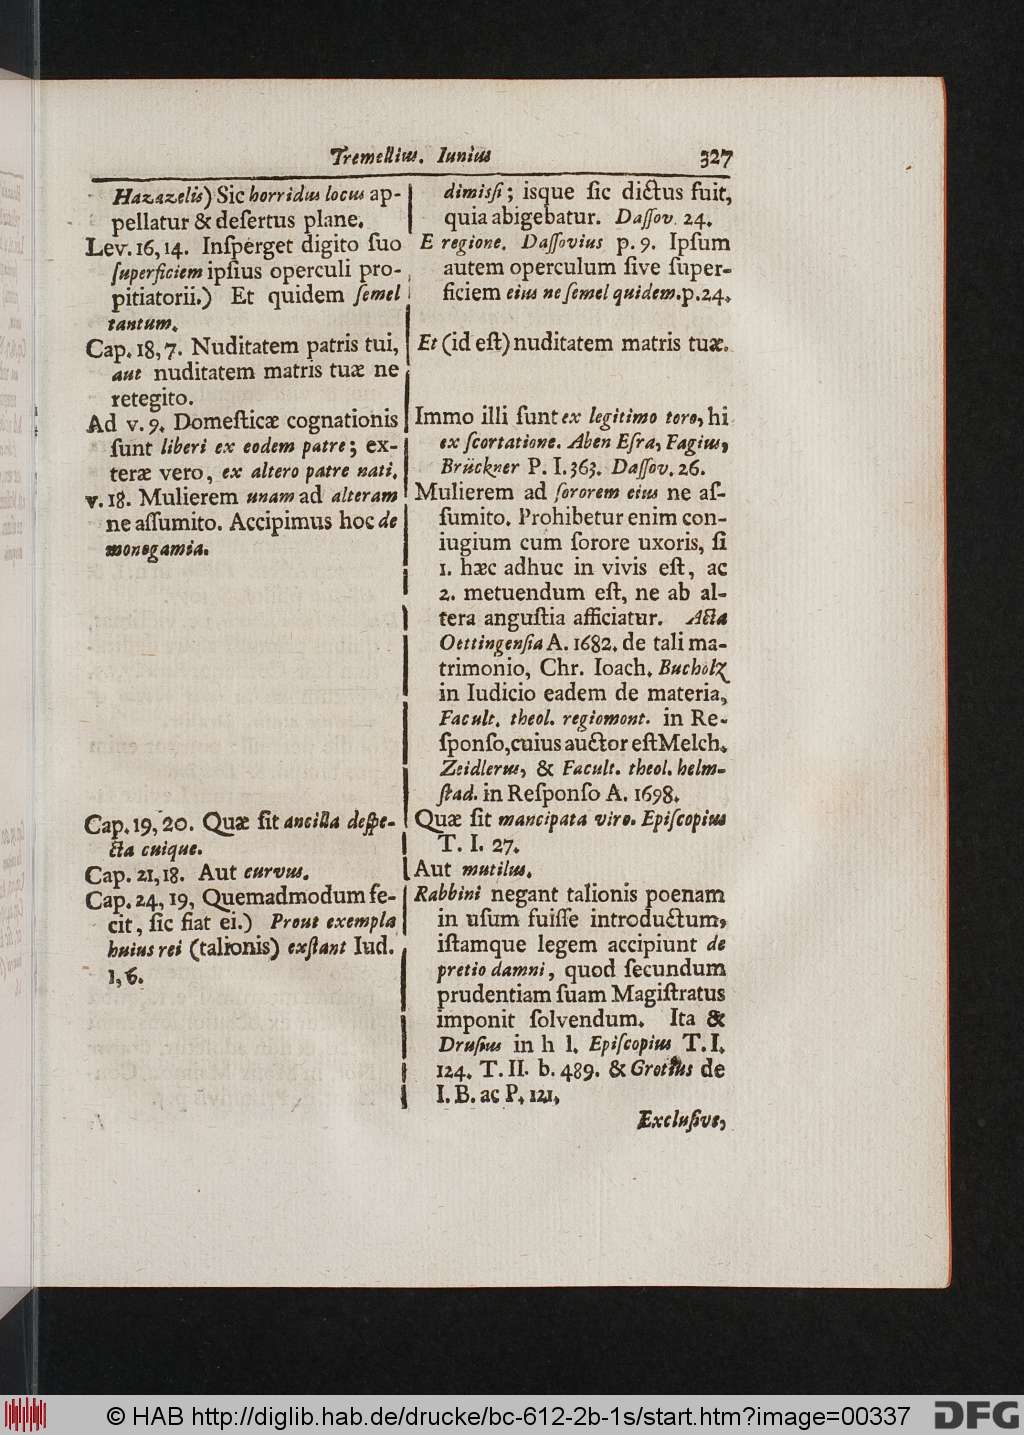 Tremellius. Iunius 327
Hazazelis) Sic horridus locus ap-
pellatur & deſertus plane.
Lev. 16, 14. Inſperget digito ſuo
ſuperficiem ipſius operculi pro-
pitiatorii.) Et quidem ſemel
tantum.
Cap. 18, 7. Nuditatem patris tui,
aut nuditatem matris tuæ ne
retegito.
Ad v. 9. Domeſticæ cognationis
ſunt liberi ex eodem patre; ex-
teræ vero, ex altero patre nati.
v. 18. Mulierem unam ad alteram
ne aſſumito. Accipimus hoc de
monogamia.
Cap. 19, 20. Quæ ſit ancilla deſpe-
cta cuique.
Cap. 21, 18. Aut curvus.
Cap. 24, 19, Quemadmodum fe-
cit, ſic fiat ei.) Prout exempla
huius rei (talionis) exſtant Iud.
1, 6.
dimiſſi; isque ſic dictus fuit,
quia abigebatur. Daſſov. 24.
E regione. Daſſovius p. 9. Ipſum
autem operculum ſive ſuper-
ficiem eius ne ſemel quidem. p. 24.
Et (id eſt) nuditatem matris tuæ.
Immo illi ſunt ex legitimo toro, hi
ex ſcortatione. Aben Eſra, Fagius,
Brückner P. I. 363. Daſſov. 26.
Mulierem ad ſororem eius ne aſ-
ſumito. Prohibetur enim con-
iugium cum ſorore uxoris, ſi
1. hæc adhuc in vivis eſt, ac
2. metuendum eſt, ne ab al-
tera anguſtia afficiatur. Acta
Oettingenſia A. 1682. de tali ma-
trimonio, Chr. Ioach. Bucholz
in Iudicio eadem de materia,
Facult. theol. regiomont. in Re-
ſponſo, cuius auctor eſt Melch.
Zeidlerus, & Facult. theol. helm-
ſtad. in Reſponſo A. 1698.
Quæ ſit mancipata viro. Epiſcopius
T. I. 27.
Aut mutilus.
Rabbini negant talionis poenam
in uſum fuiſſe introductum,
iſtamque legem accipiunt de
pretio damni, quod ſecundum
prudentiam ſuam Magiſtratus
imponit ſolvendum. Ita &
Druſius in h l. Epiſcopius T. I.
124. T. II. b. 489. & Grotius de
I. B. ac P. 121,
Excluſive,
© HAB http://diglib.hab.de/drucke/bc-612-2b-1s/start.htm?image=00337 DFG